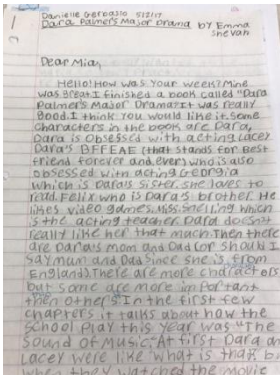 Danielle Gervasio 5/2/17
Dara Palmer's Major Drama by Emma
Shevah
Dear Mia,
Hello! How was your week? Mine
was great. I finished a book called "Dara
Palmer's Major Drama." It was really
good. I think you would like it. Some
characters in the book are Dara,
Dara is obsessed with acting, Lacey
Dara's BFFEAE (that stands for Best
friend forever and ever) who is also
obsessed with acting, Georgia
which is Dara's sister. She loves to
read. Felix who is Dara's brother. He
likes video games. Miss Snelling which
is the acting teacher. Dara doesn't
really like her that much. Then there
are Dara's Mom and Dad (or should I
say mum and Dad since she is from
England). There are more characters
but some are more important
then others. In the first few
chapters it talks about how the
school play this year was "The
Sound of Music." At first Dara an
Lacey were like "what is that b
when they watched the movie